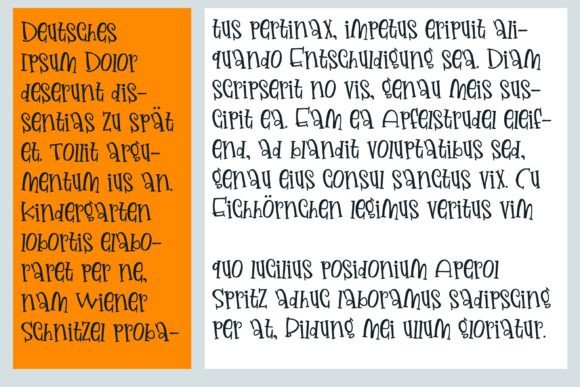 Deutsches
Ipsum Dolor
deserunt dis-
sentias zu spät
et. Tollit argu-
mentum ius an.
Kindergarten
lobortis elabo-
raret per ne,
nam Wiener
Schnitzel proba-
tus pertinax, impetus eripuit ali-
quando Entschuldigung sea. Diam
scripserit no vis, genau meis sus-
cipit ea. Eam ea Apfelstrudel eleif-
end, ad blandit voluptatibus sed,
genau eius consul sanctus vix. Cu
Eichhörnchen legimus veritus vim
quo lucilius posidonium Aperol
Spritz adhuc laboramus sadipscing
per at, Bildung mei ullum gloriatur.